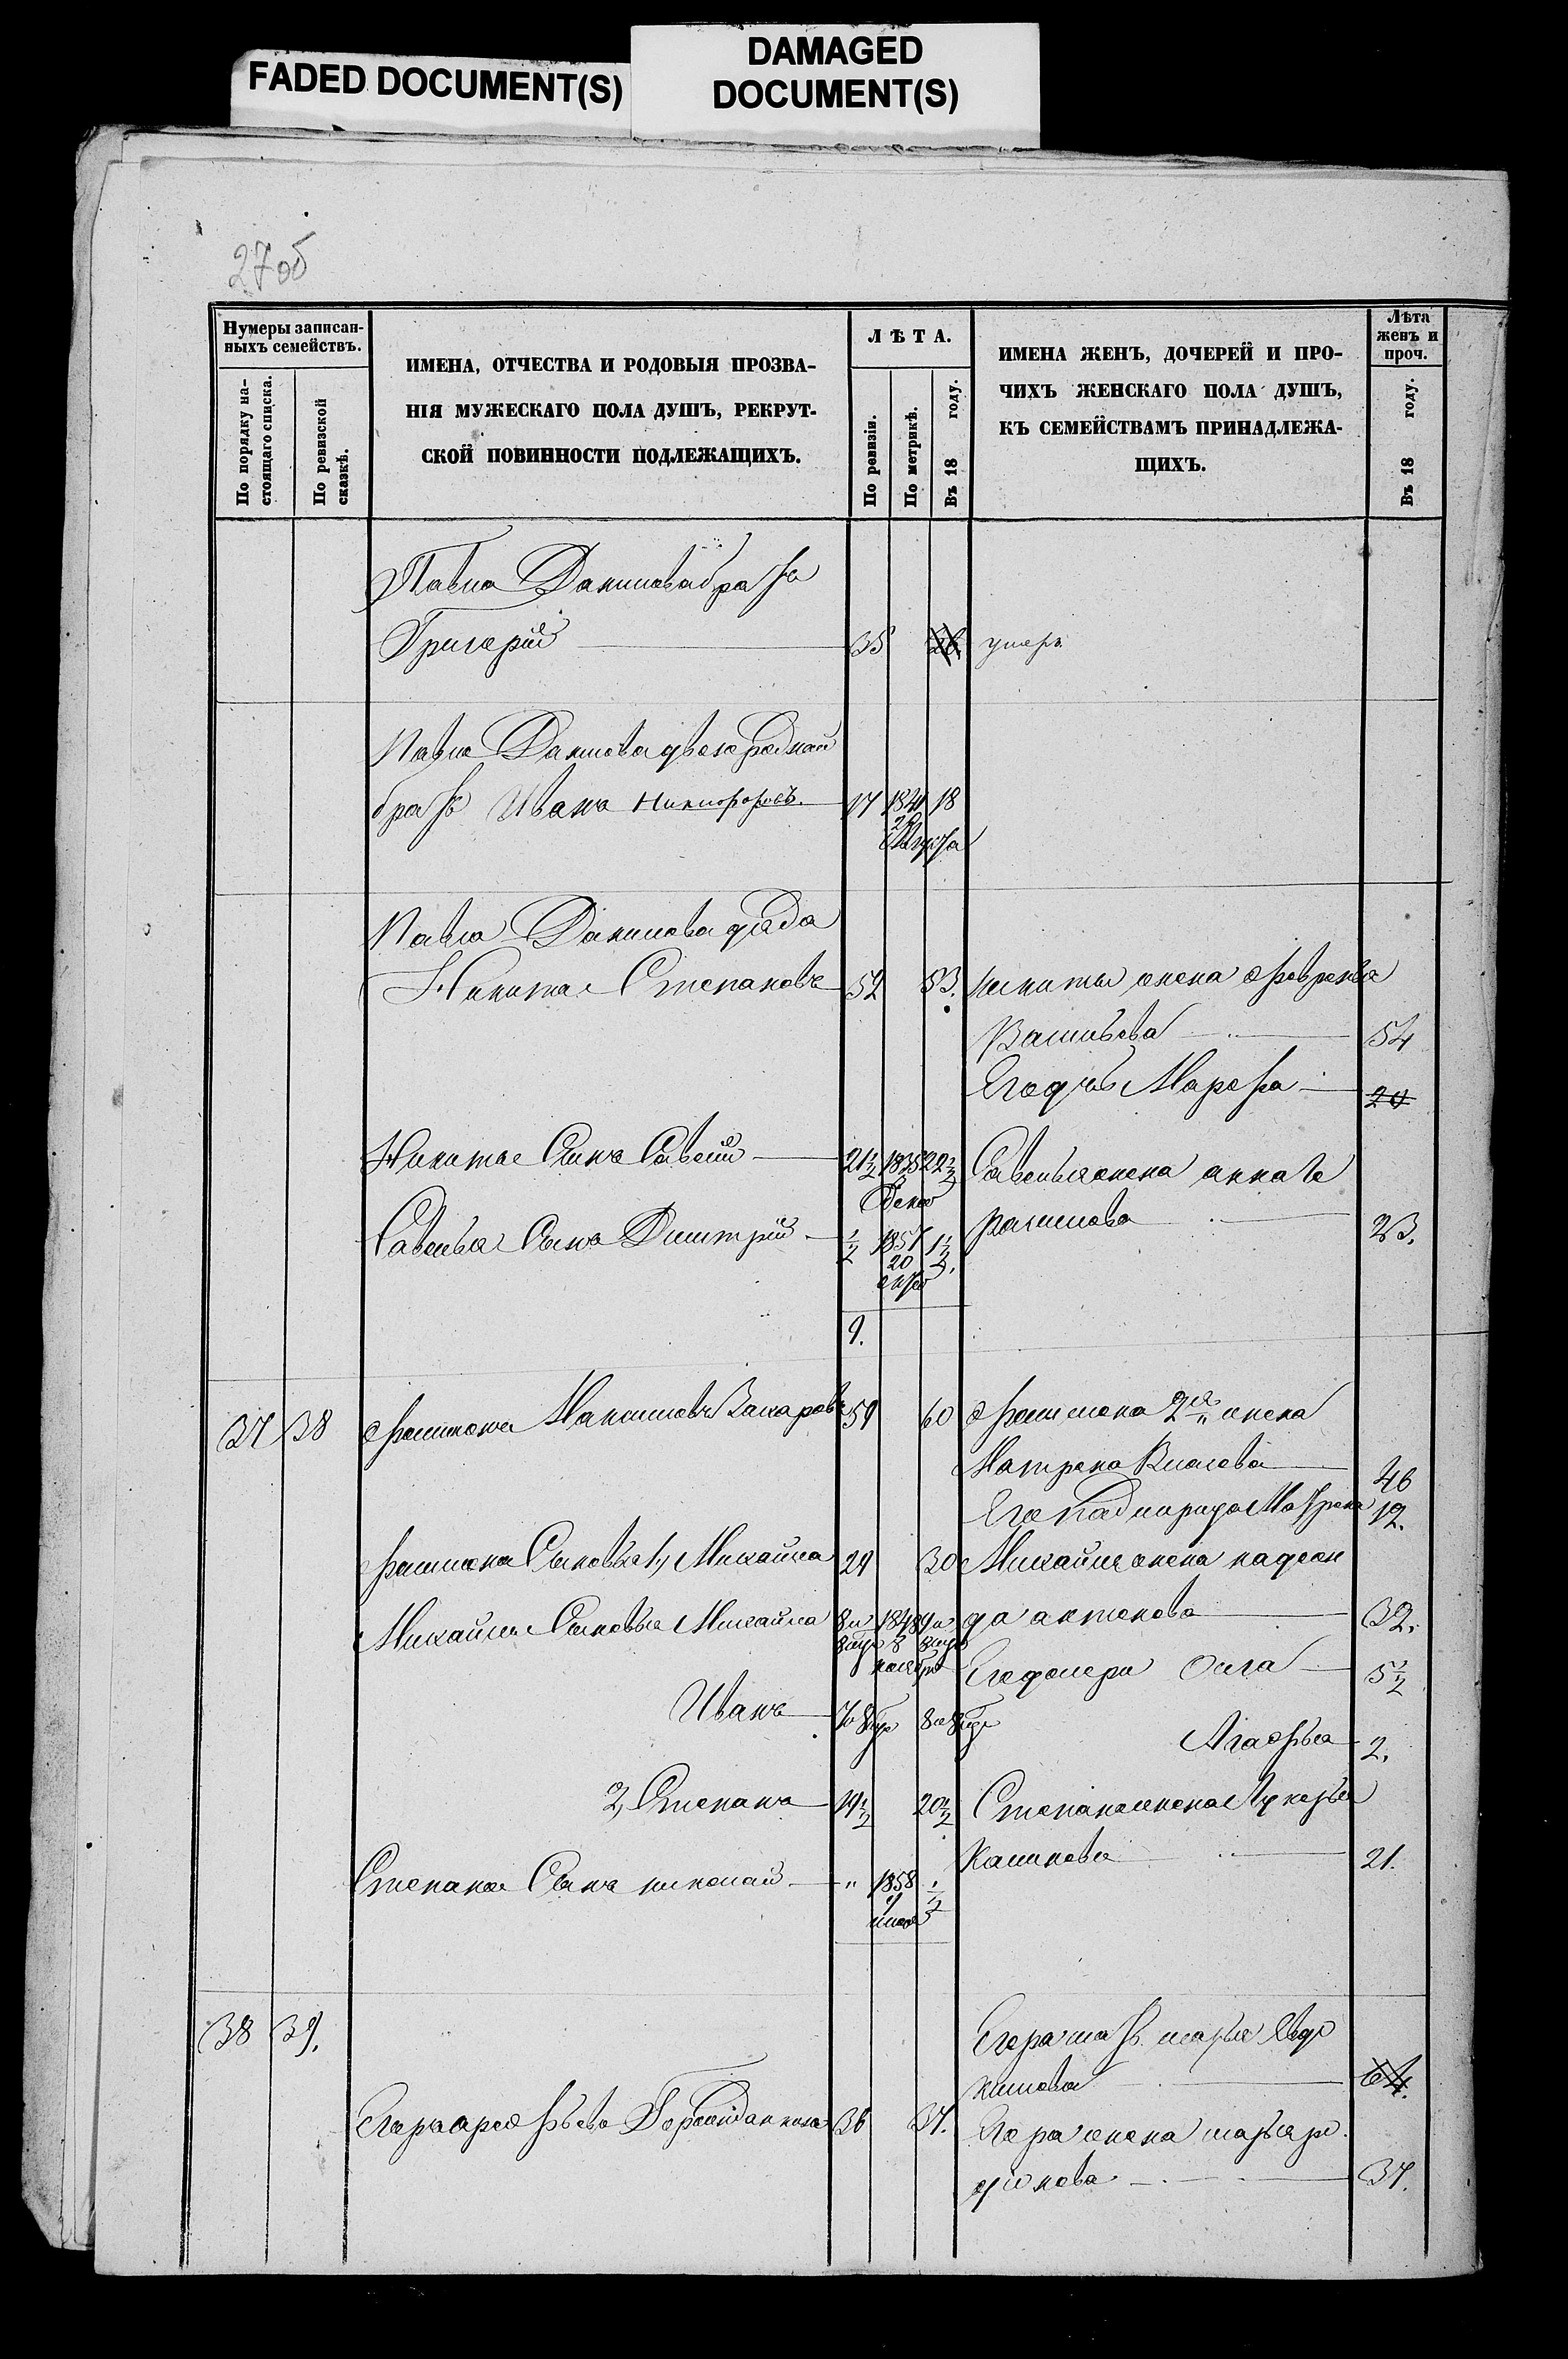 FADED DOCUMENT(S)
DAMAGED
DOCUMENT(S)
27об
Нумеры записан-
ныхъ семействъ.
По порядку на-
стоящаго списка.
По ревизской
сказкѣ.
ИМЕНА, ОТЧЕСТВА И РОДОВЫЯ ПРОЗВА-
НІЯ МУЖЕСКАГО ПОЛА ДУШЪ, РЕКРУТ-
СКОЙ ПОВИННОСТИ ПОДЛЕЖАЩИХЪ.
ЛѢТА.
По ревизіи.
По метрикѣ.
Въ 18 году.
ИМЕНА ЖЕНЪ, ДОЧЕРЕЙ И ПРО-
ЧИХЪ ЖЕНСКАГО ПОЛА ДУШЪ,
КЪ СЕМЕЙСТВАМЪ ПРИНАДЛЕЖА-
ЩИХЪ.
Лѣта
женъ и
проч.
Въ 18 году.
Павла Данилова братъ
Григорій 35 умеръ
Павла Данилова двоюродной
братъ Иванъ Никифоровъ 17 1841 18
Августа
Павла Данилова дядя
Никита Степановъ 52 53. Никиты жена
Васильева 54
Его дочь Марфа 20
Никиты Сынъ Савелій 21½ 1835 22½ Савелья жена анна Ге
расимова 23.
Савелья Сынъ Дмитрій ½ 1857 1½
20
9.
37 38 Филимонъ Максимовъ Захаровъ 59 60 Филимона 2я жена
Матрена Власова 46
Его падчерица Матрена 12.
Филимона Сыновья 1, Михайла 29 30 Михайлы жена надеж
да антонова 32.
Михайлы Сыновья Михайла 8 и 1848 9 и
8 8
ноября
Его дочери Ольга 5½
Иванъ
Агафья 2.
2, Степанъ 19½ 20½ Степана жена Лукерья
Калинова 21.
Степана Сынъ николай " 1858 ½
38 39.
Егора мать марья Евдо
кимова 64.
Егоръ 36 37. Егора жена марья ро
діонова 37.